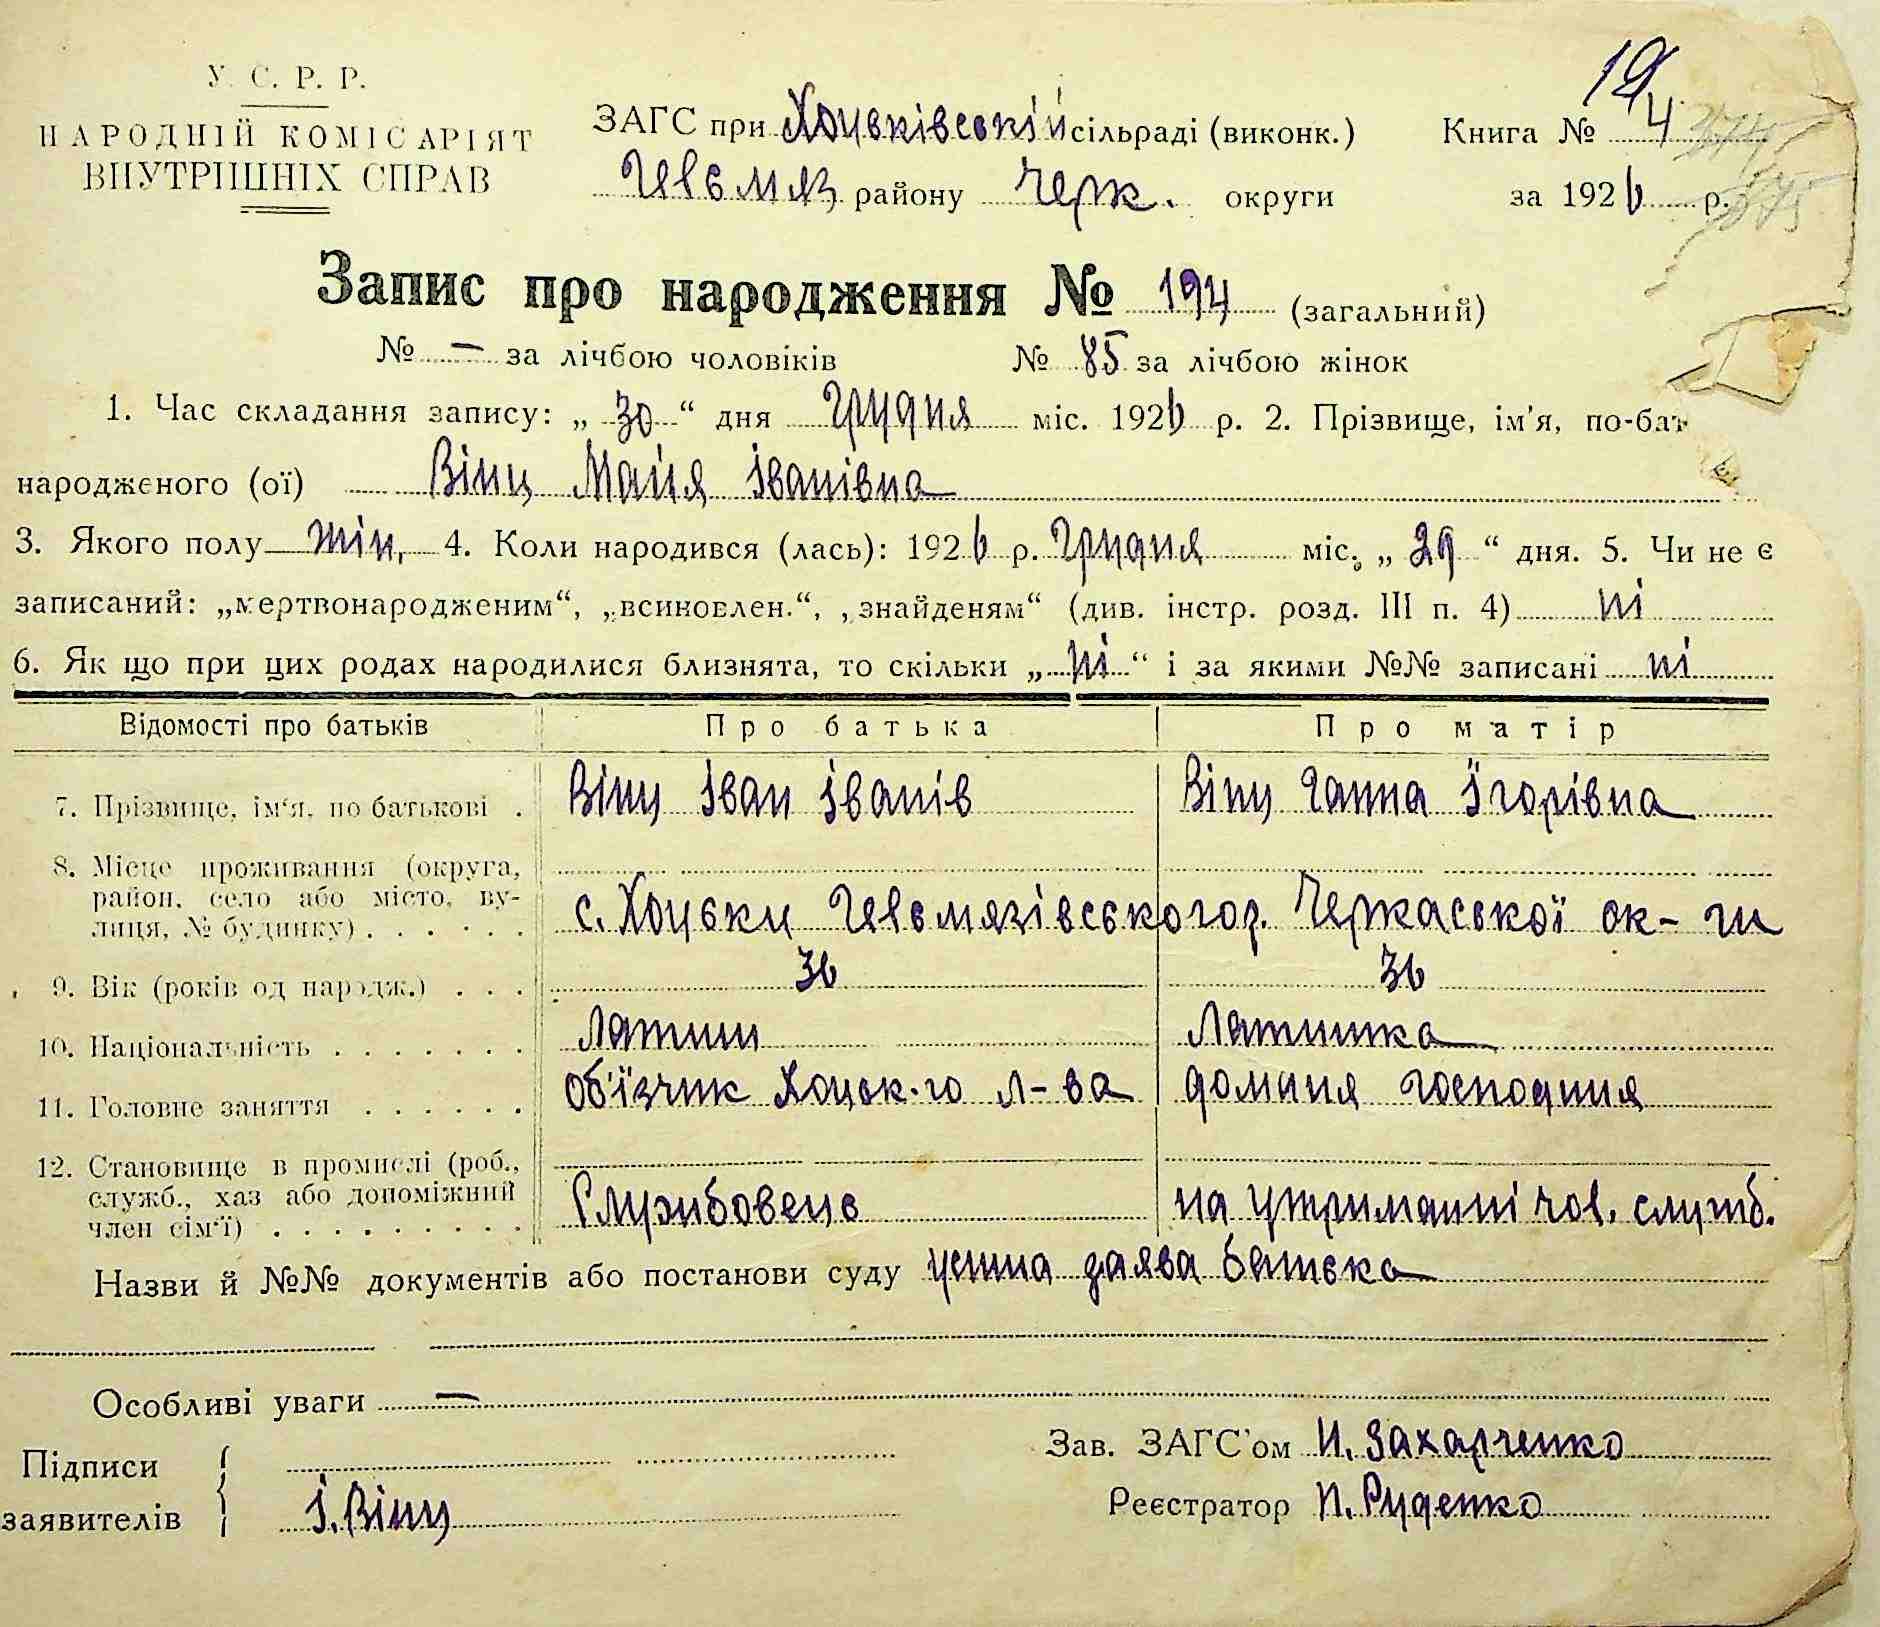 19
У. С. Р. Р.
НАРОДНІЙ КОМІСАРІЯТ
ВНУТРІШНІХ СПРАВ
ЗАГС при Хоцьківській сільраді (виконк.)
Книга № 4
Гельмяз району Черк. округи
за 1926 р.
Запис про народження № 194 (загальний)
№ — за лічбою чоловіків № 85 за лічбою жінок
1. Час складання запису: „ 30 “ дня грудня міс. 1926 р. 2. Прізвище, ім'я, по-бат
народженого (ої) Вінц Майя Іванівна
3. Якого полу жін. 4. Коли народився (лась): 1926 р. Грудня міс. „ 29 “ дня. 5. Чи не є
записаний: „мертвонародженим“, „всиновлен.“, „знайденям“ (див. інстр. розд. III п. 4) ні
6. Як що при цих родах народилися близнята, то скільки „ ні “ і за якими №№ записані ні
Відомості про батьків Про батька Про матір
7. Прізвище, ім'я, по батькові . Вінц Іван Іванів Вінц Ганна Ігорівна
8. Місце проживання (округа,
район, село або місто, ву-
лиця, № будинку) . . . . . . с. Хоцьки Гельмязівського р. Черкаської ок-ги
9. Вік (років од народж.) . . . 36 36
10. Національність . . . . . . . Латиш Латишка
11. Головне заняття . . . . . . Об'їзчик Хоцьк-го л-ва домашня господиня
12. Становище в промислі (роб.,
служб., хаз або допоміжний
член сім'ї) . . . . . . . . . Службовець на утриманні чол. служб.
Назви й №№ документів або постанови суду усна заява батька
Особливі уваги —
Підписи
заявителів І. Вінц
Зав. ЗАГС'ом И. Захарченко
Реєстратор П. Руденко